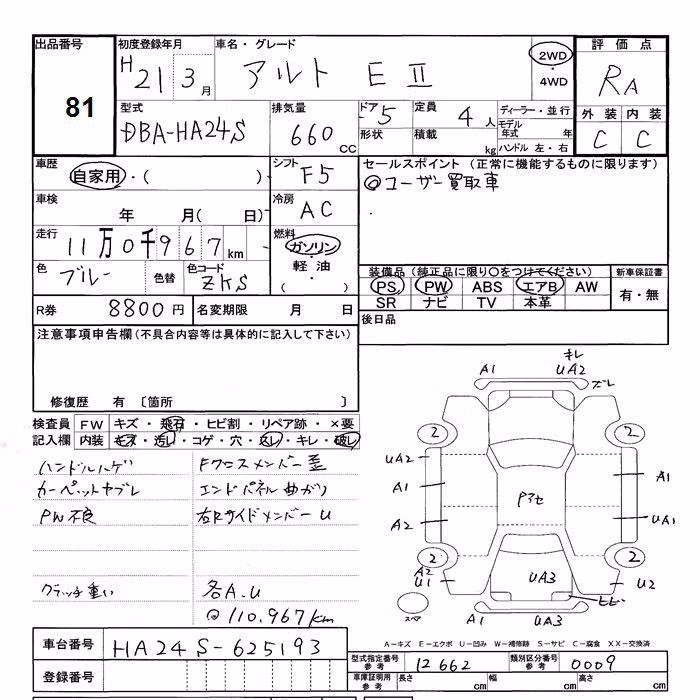 出品番号 初度登録年月 車名・グレード 評価点
81 H 21 3月 アルト EⅡ 2WD ・ 4WD RA
型式 排気量 ドア 定員 ディーラー・並行 外装 内装
DBA-HA24S 660 CC 5 4人 モデル年式 年 C C
形状 積載 kg ハンドル 左・右
車歴 シフト セールスポイント (正常に機能するものに限ります)
自家用・( ) F5 ◎ユーザー買取車
車検 冷房
年 月( 日) AC
走行 燃料
11万0千967km ガソリン ・ 軽油 ・ ( )
色 色替 色コード 装備品 (純正品に限り○をつけてください) 新車保証書
ブルー ZKS PS PW ABS エアB AW 有・無
SR ナビ TV 本革
R券 8800円 名変期限 月 日 後日品
注意事項申告欄(不具合内容等は具体的に記入して下さい)
修復歴 有 〔箇所 〕
検査員 FW キズ・飛石・ヒビ割・リペア跡・×要
記入欄 内装 キズ・汚レ・コゲ・穴・スレ・キレ・破レ
ハンドルハゲ Fクロスメンバー歪
カーペットヤブレ エンドパネル曲がり
PW不良 右Rサイドメンバー U
クラッチ重い 各A.U
◎110.967km
キレ
A1 UA2 ズレ
2 2
UA2 A1
A1 Pアセ
A2 UA1
2 2
A2 U1 UA3 U2
ヒビ
スペア A1 UA3
A-キズ E-エクボ U-凹み W-補修跡 S-サビ C-腐食 XX-交換済
車台番号 HA24S-625193
型式指定番号 参考 12662 類別区分番号 参考 0009
登録番号 車庫証明用 参考 長さ cm 幅 cm 高さ cm